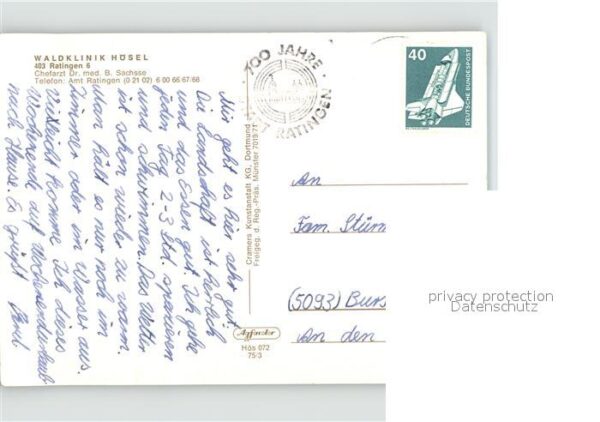 WALDKLINIK HÖSEL
403 Ratingen 6
Chefarzt Dr. med. B. Sachsse
Telefon: Amt Ratingen (0 21 02) 6 00 66 67/68
700 JAHRE
RATINGEN
40
DEUTSCHE BUNDESPOST
Mir geht es hier sehr gut
Die Landschaft ist herrlich
und das Essen gut. Ich gehe
jeden Tag 2-3 Std. spazieren
und schwimmen. Das Wetter
ist schon wieder zu warm.
Man hält es nur noch im
Zimmer oder im Wasser aus.
Vielleicht komme ich dieses
Wochenende auf Wochenendurlaub
nach Haus. Es grüßt
Cramers Kunstanstalt KG, Dortmund
Freigeg. d. Reg.-Präs. Münster
Hös 072
75/3
An
Fam. Stürm
(5093) Burs
An den
privacy protection
Datenschutz